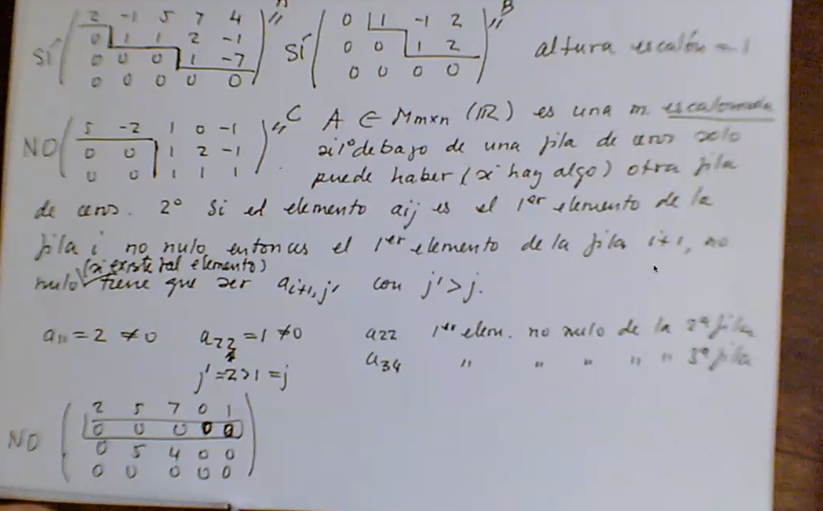 SÍ ( 2 -1 5 7 4 )" A SÍ ( 0 1 -1 2 )" B
0 1 1 2 -1 0 0 1 2 altura escalón = 1
0 0 0 1 -7 0 0 0 0
0 0 0 0 0
NO ( 5 -2 1 0 -1 )" C A ∈ Mmxn (ℝ) es una m. escalonada
0 0 1 2 -1 si 1º debajo de una fila de ceros solo
0 0 1 1 1 puede haber (si hay algo) otra fila
de ceros. 2º Si el elemento aij es el 1er elemento de la
fila i no nulo entonces el 1er elemento de la fila i+1, no
(si existe tal elemento)
nulo tiene que ser ai+1,j' con j'>j.
a11 = 2 ≠0 a22 = 1 ≠0 a22 1er elem. no nulo de la 2ª fila
j'=2>1=j a34 " " " " " 3ª fila
NO ( 2 5 7 0 1 )
0 0 0 0 0
0 5 4 0 0
0 0 0 0 0